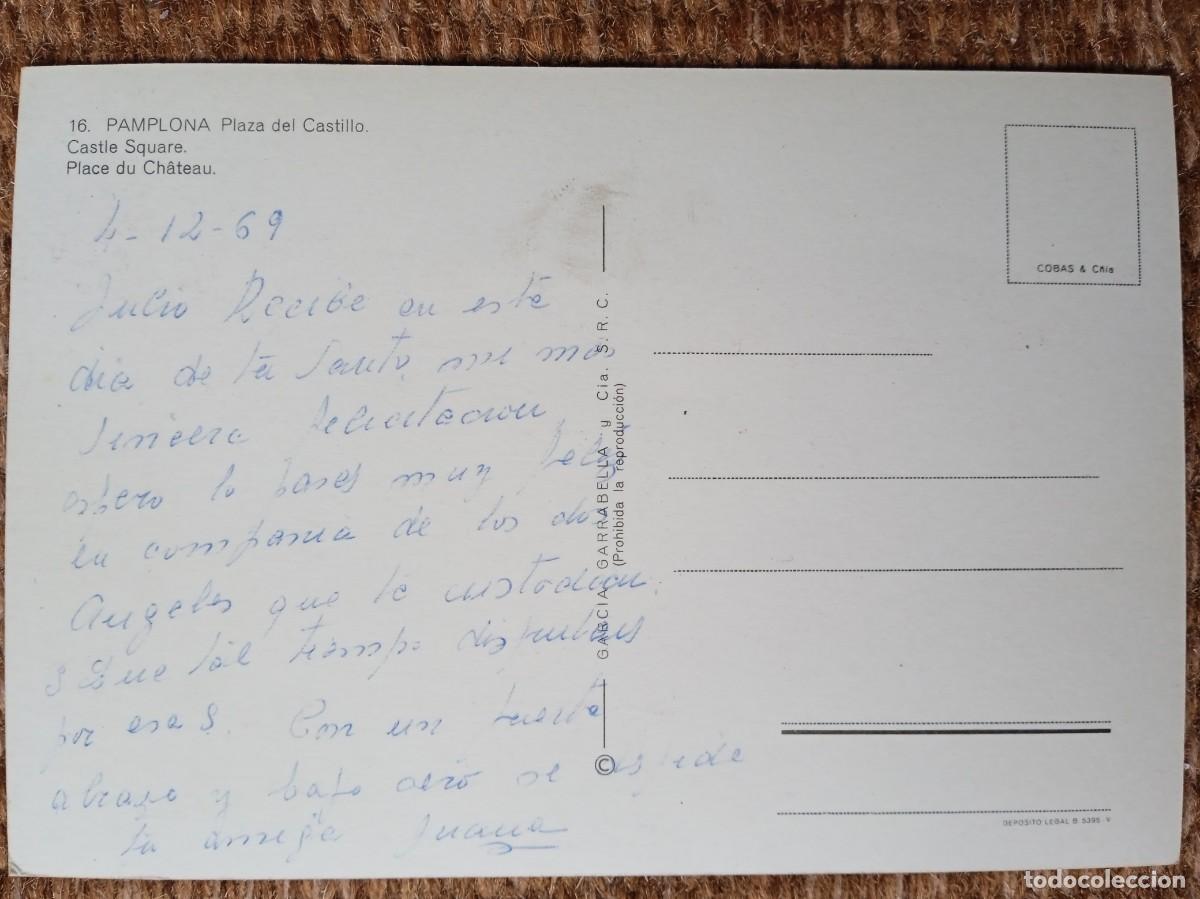 16. PAMPLONA Plaza del Castillo.
Castle Square.
Place du Château.
4-12-69
Julio Recibe en este
dia de tu Santo, mi mas
sincera felicitacion
espero lo pases muy feliz
en compania de los dos
Angeles que te custodian.
¿Que tal tiempo disfrutais
por esas. Con un fuerte
abrazo y bajo cero se despide
tu amiga Juana
GARCIA GARRABELLA y Cia. S.R.C.
(Prohibida la reproducción)
©
COBAS & Cñia
DEPOSITO LEGAL B 5395-V
todocoleccion